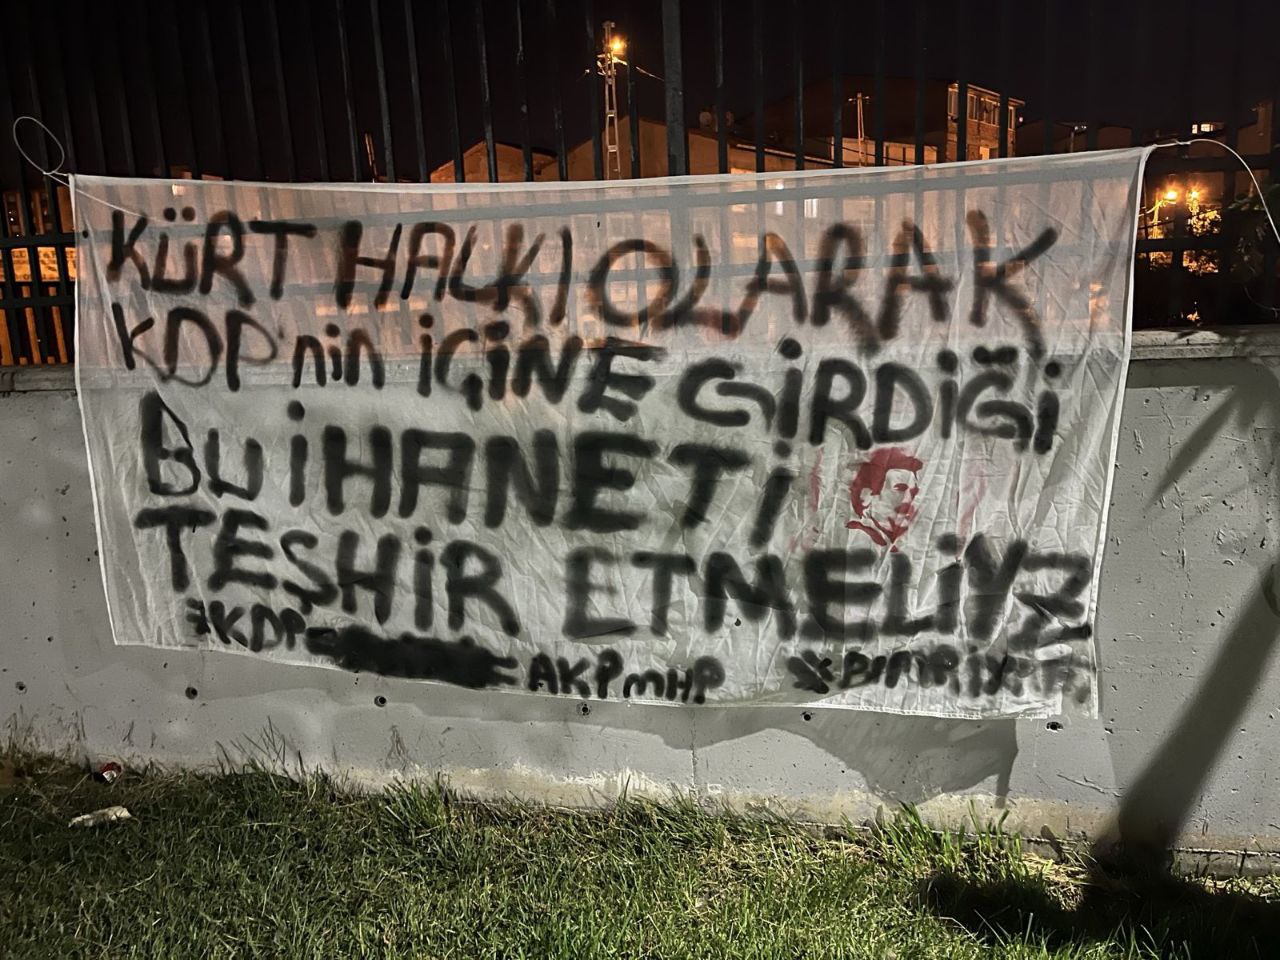 KÜRT HALKI OLARAK
KDP'nin İÇİNE GİRDİĞİ
BU İHANETİ
TEŞHİR ETMELİYİZ
#KDP= = AKP mHP